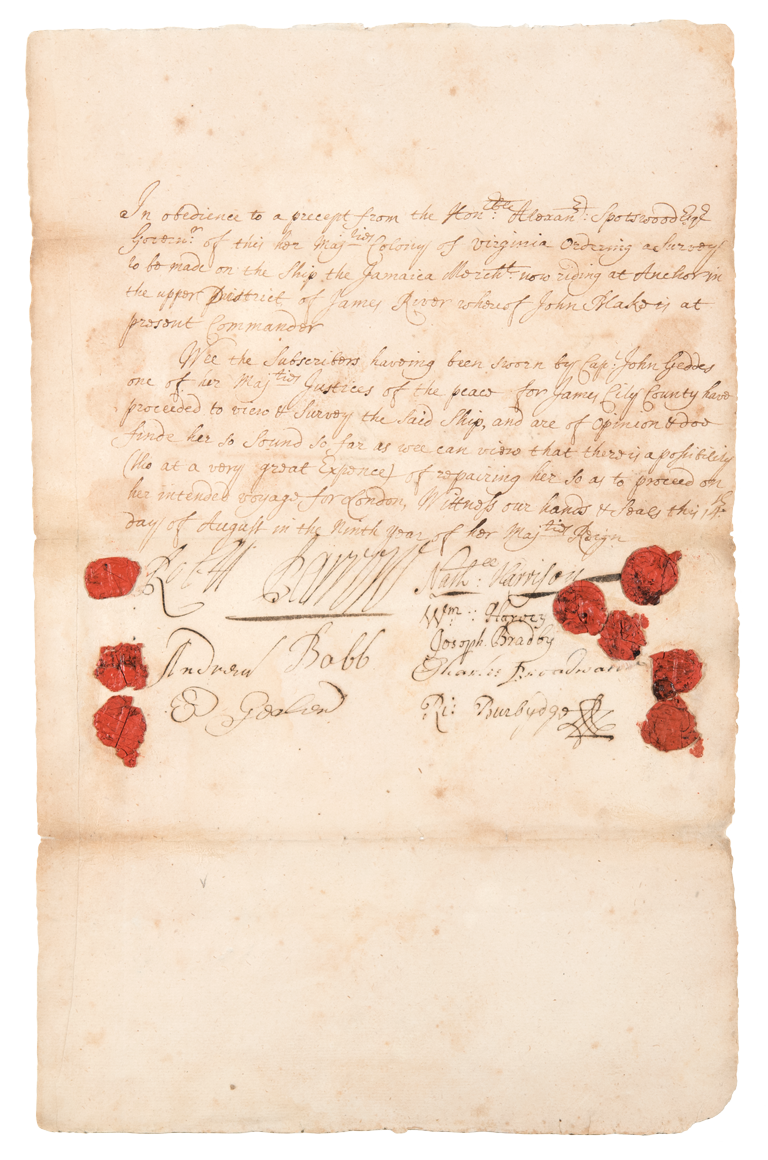 In obedience to a precept from the Hon:ble Alexand:r Spotswood Esqr
Govern:r of this her Majties Colony of Virginia Ordering a Survey
to be made on the Ship the Jamaica Mercht: now riding at Anchor in
the upper District of James River whereof John Blake is at
present Commander
Wee the Subscribers haveing been sworn by Cap: John Geddes
one of her Majties Justices of the peace for James City County have
proceeded to view & Survey the said Ship, and are of Opinion & doe
finde her so Sound so far as wee can view that there is a posibility
(tho at a very great Expence) of repairing her so as to proceed on
her intended voyage for London, Wittness our hands & Seals this
day of August in the Ninth year of her Majties Reign
Nath:ll Harrison
Wm: Harvey
Joseph Bradby
Andrew Babb
Charles
Ri: Burbydge